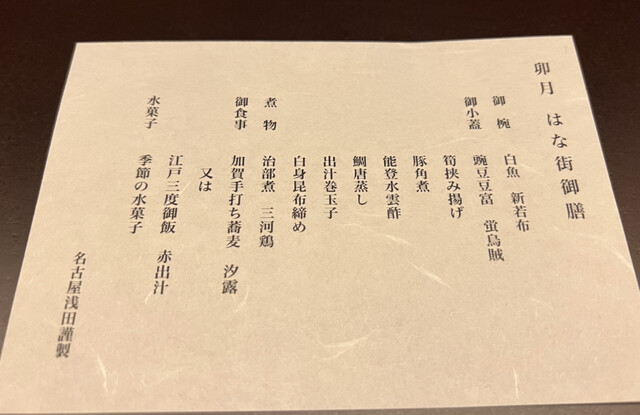 卯月 はな街御膳
御椀 白魚 新若布
御小蓋 豌豆豆富 蛍烏賊
筍挟み揚げ
豚角煮
能登水雲酢
鯛唐蒸し
出汁巻玉子
白身昆布締め
煮物 治部煮 三河鶏
御食事 加賀手打ち蕎麦 汐露
又は
江戸三度御飯 赤出汁
水菓子 季節の水菓子
名古屋浅田謹製